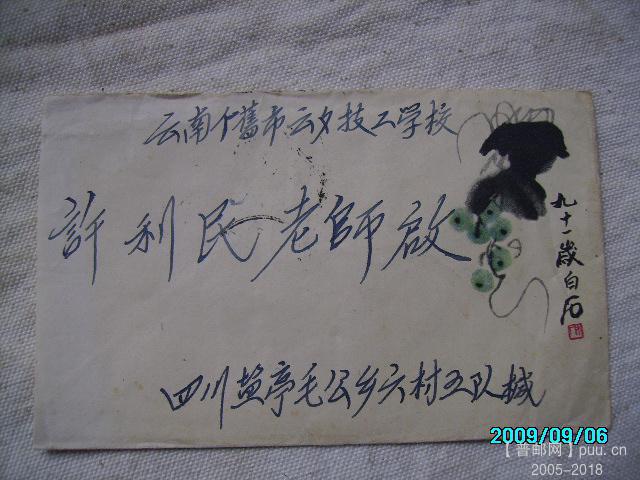 云南个舊市云夕技工学校
許利民老師啟
九十一歲白石
四川盐亭毛公乡六村五队緘
2009/09/06
【普邮网】puu.cn
2005-2018